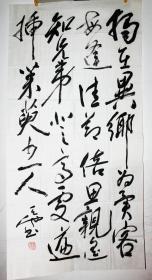 独在異鄉为異客
每逢佳节倍思親遥
知兄弟登高處遍
插茱萸少一人